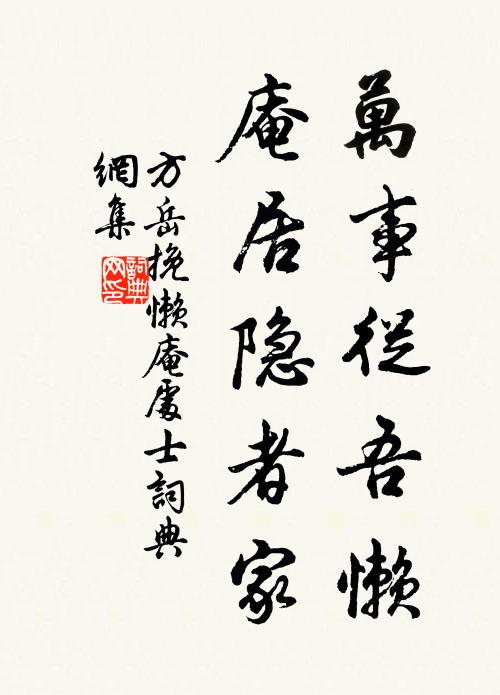 萬事從吾懶
庵居隐者家
方岳挽懒庵處士詞典
網集
詞典
网印